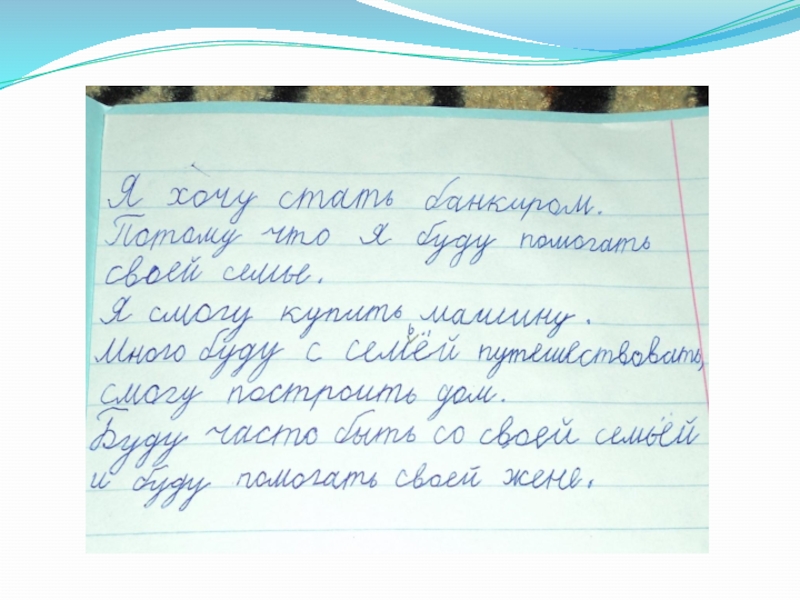 Я хочу стать банкиром.
Потому что я буду помогать
своей семье.
Я смогу купить машину.
Много буду с семьёй путешествовать,
смогу построить дом.
Буду часто быть со своей семьёй
и буду помогать своей жене.